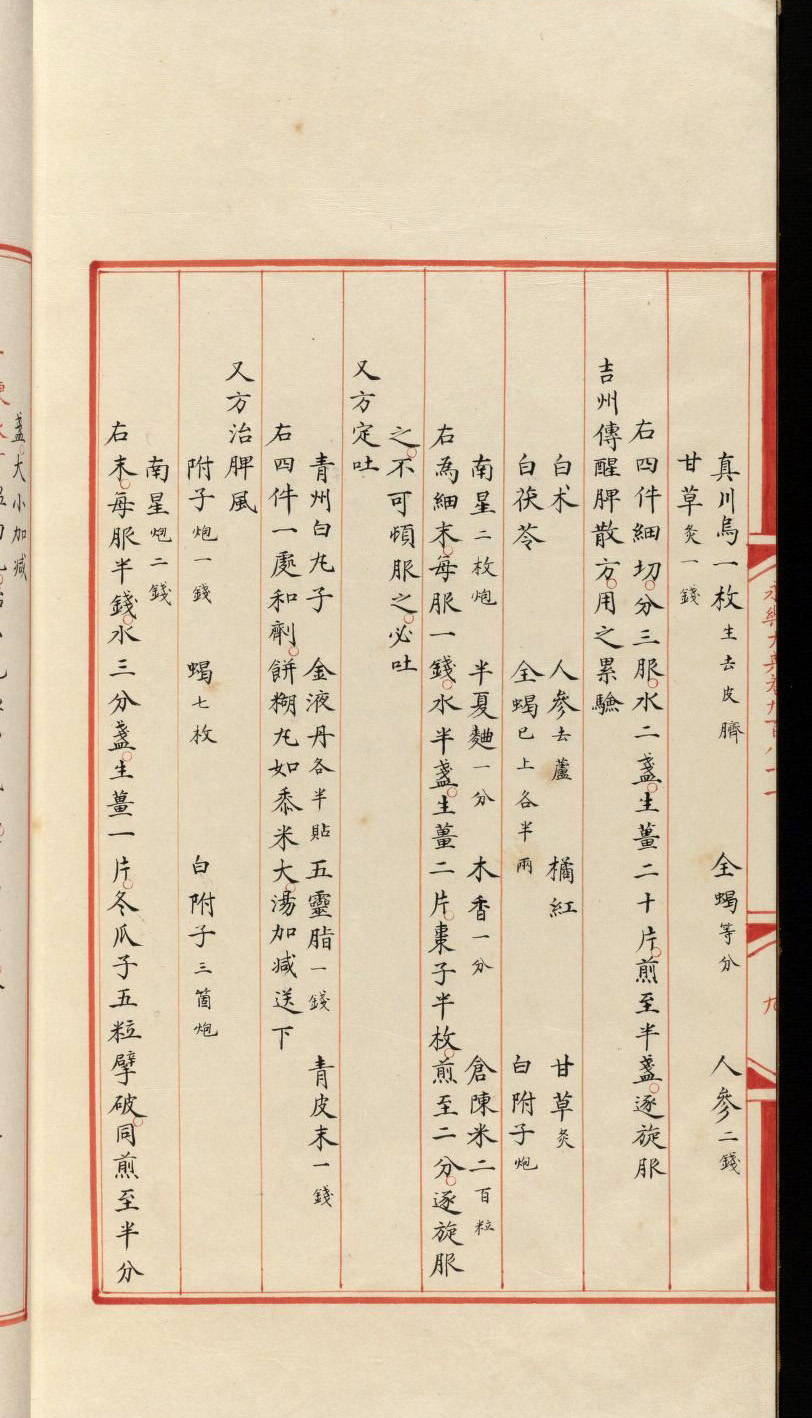 真川烏一枚生去皮臍 全蝎等分 人參二錢
甘草炙一錢
右四件細切。分三服。水二盞。生薑二十片。煎至半盞。逐旋服
吉州傳醒脾散方。用之累驗
白术 人參去蘆 橘紅 甘草炙
白茯苓 全蝎已上各半兩 白附子炮
南星二枚炮 半夏麯一分 木香一分 倉陳米二百粒
右為細末。每服一錢。水半盞。生薑二片。棗子半枚。煎至二分。逐旋服
之。不可頓服之。必吐
又方定吐
青州白丸子 金液丹各半貼 五靈脂一錢 青皮末一錢
右四件一處和劑。餅糊丸如黍米大。湯加减送下
又方治脾風
附子炮一錢 蝎七枚 白附子三箇炮
南星炮二錢
右末。每服半錢。水三分盞。生薑一片。冬瓜子五粒擘破。同煎至半分
盞。大小加减